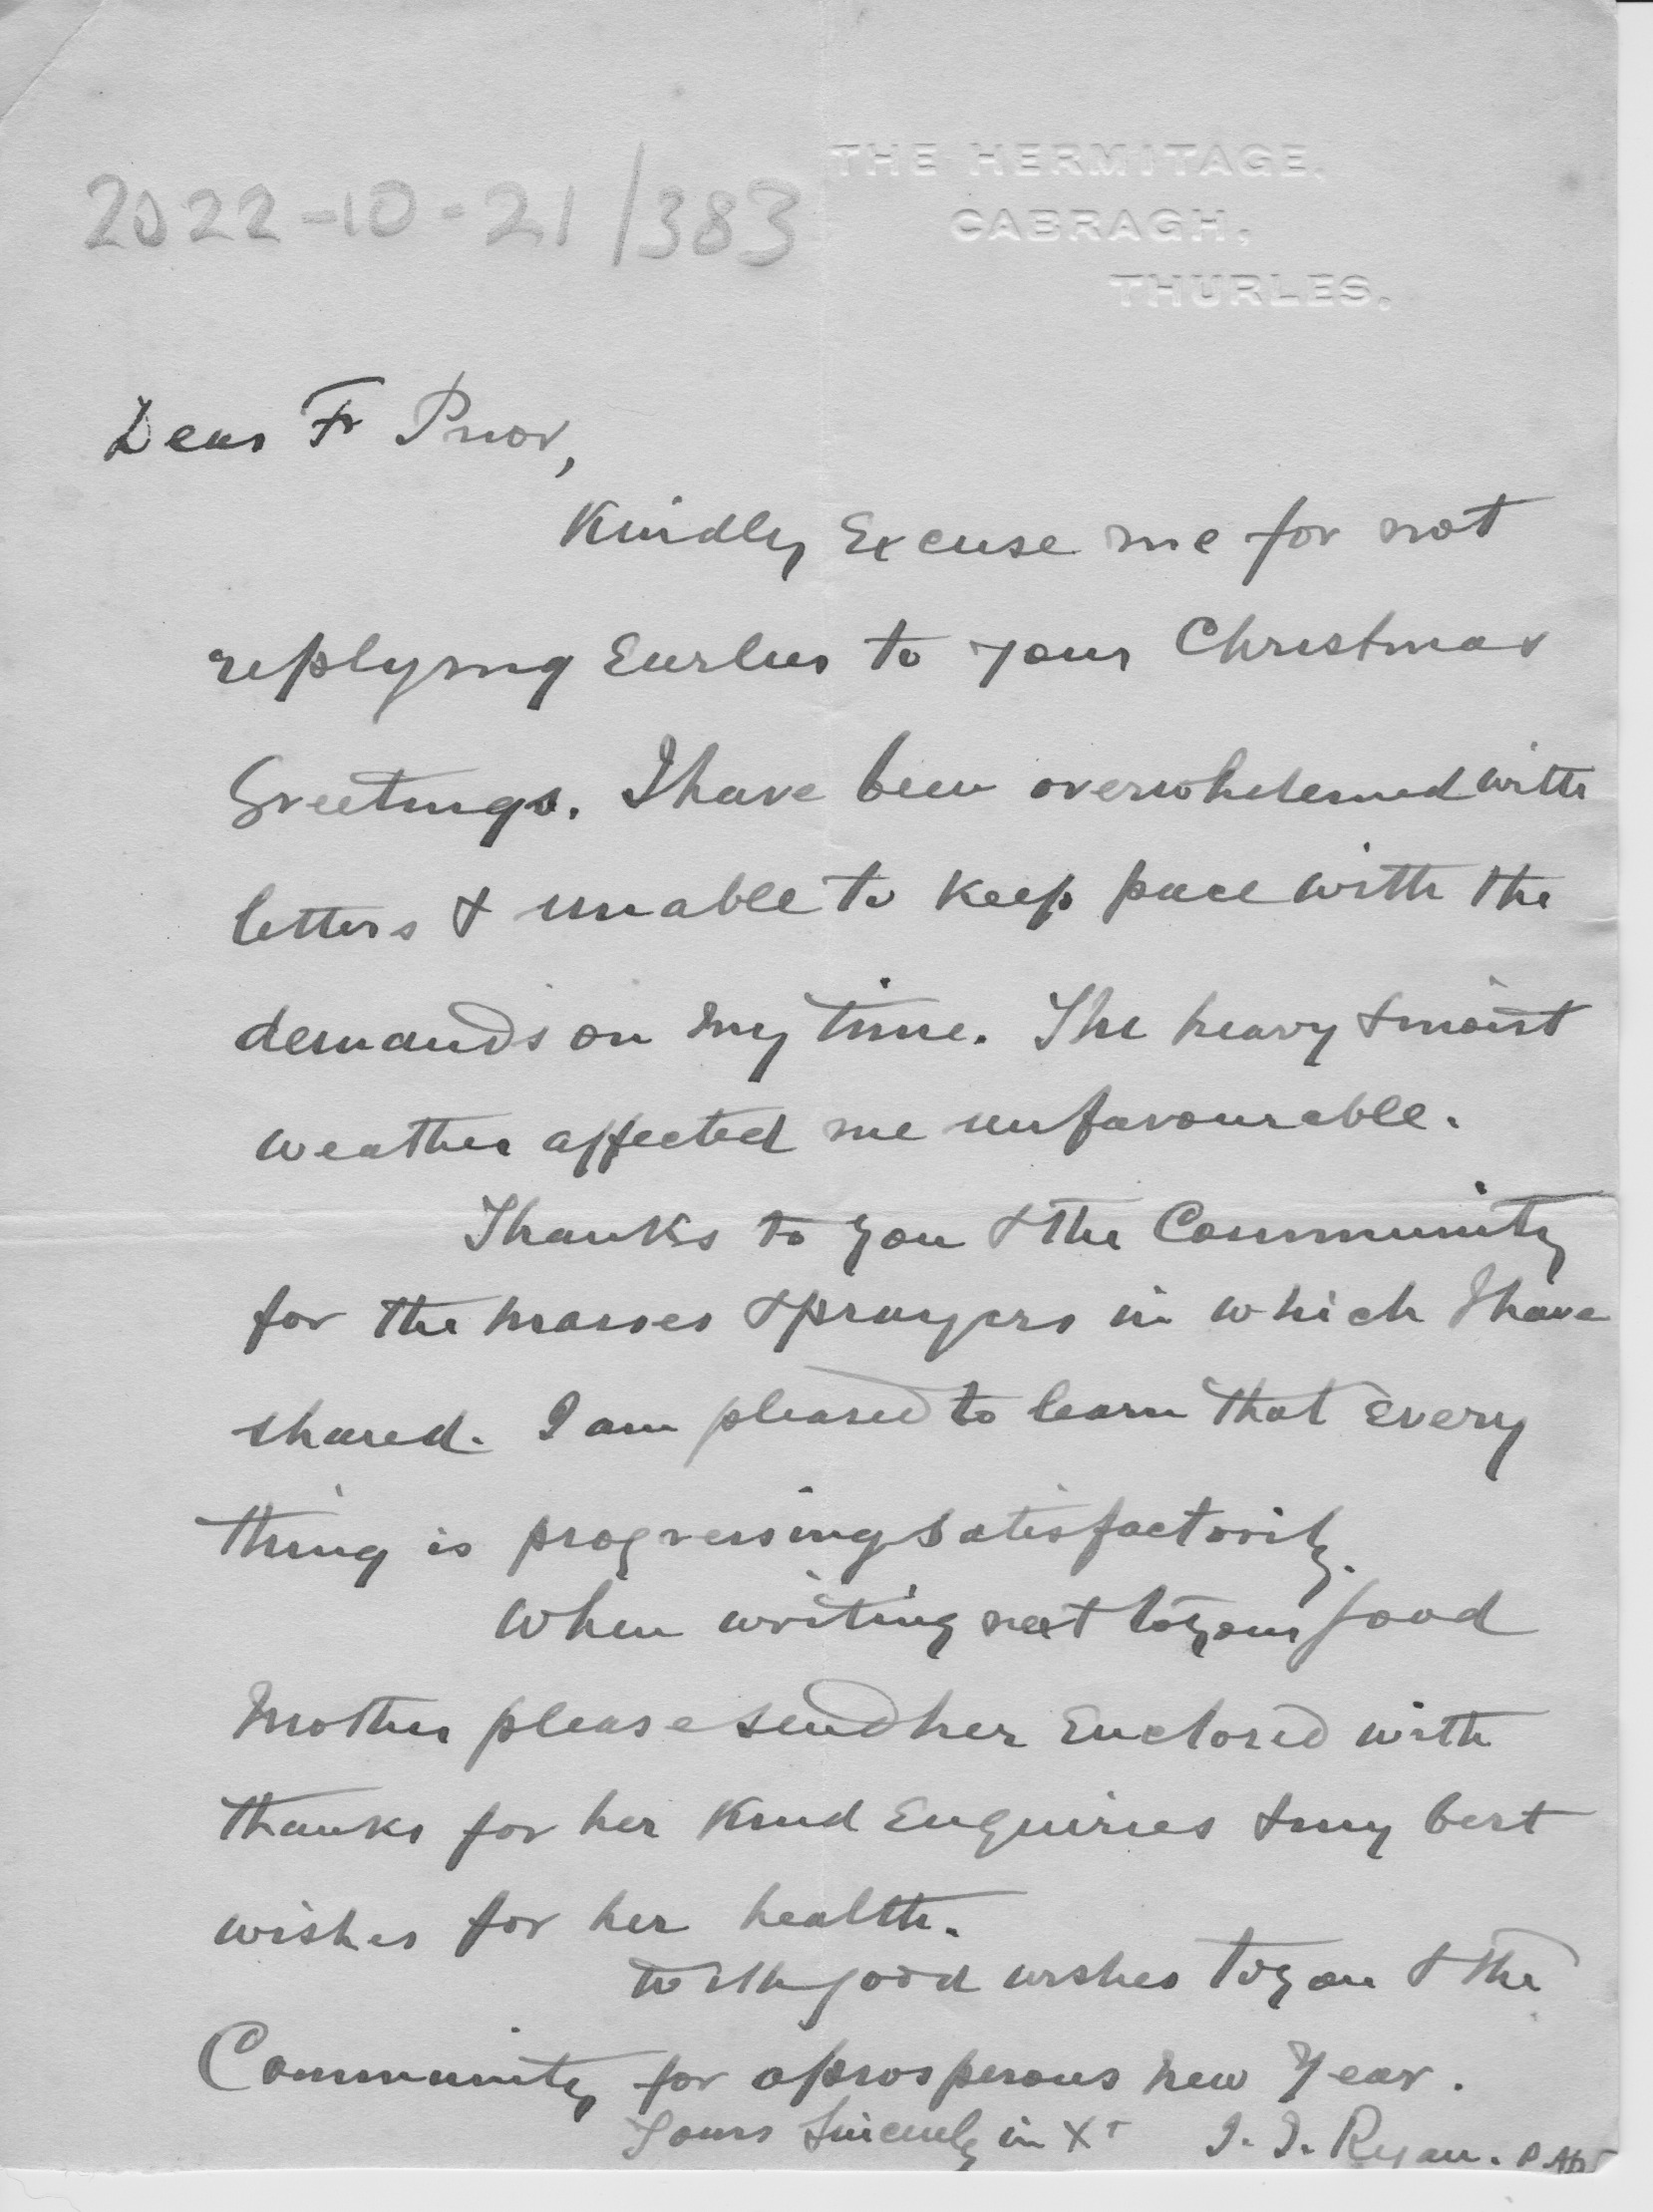 2022-10-21/383
THE HERMITAGE,
CABRAGH,
THURLES.
Dear Fr Prior,
Kindly Excuse me for not
replying Earlier to your Christmas
Greetings. I have been overwhelemed with
letters & unable to keep pace with the
demands on my time. The heavy & moist
weather affected me unfavourable.
Thanks to you & the Community
for the masses & prayers in which I have
shared. I am pleased to learn that Every
thing is progressing satisfactorily.
When writing next to your good
Mother please send her Enclosed with
thanks for her kind Enquiries & my best
wishes for her health.
With good wishes to you & the
Community for a prosperous new Year.
Yours Sincerely in Xt J. J. Ryan.